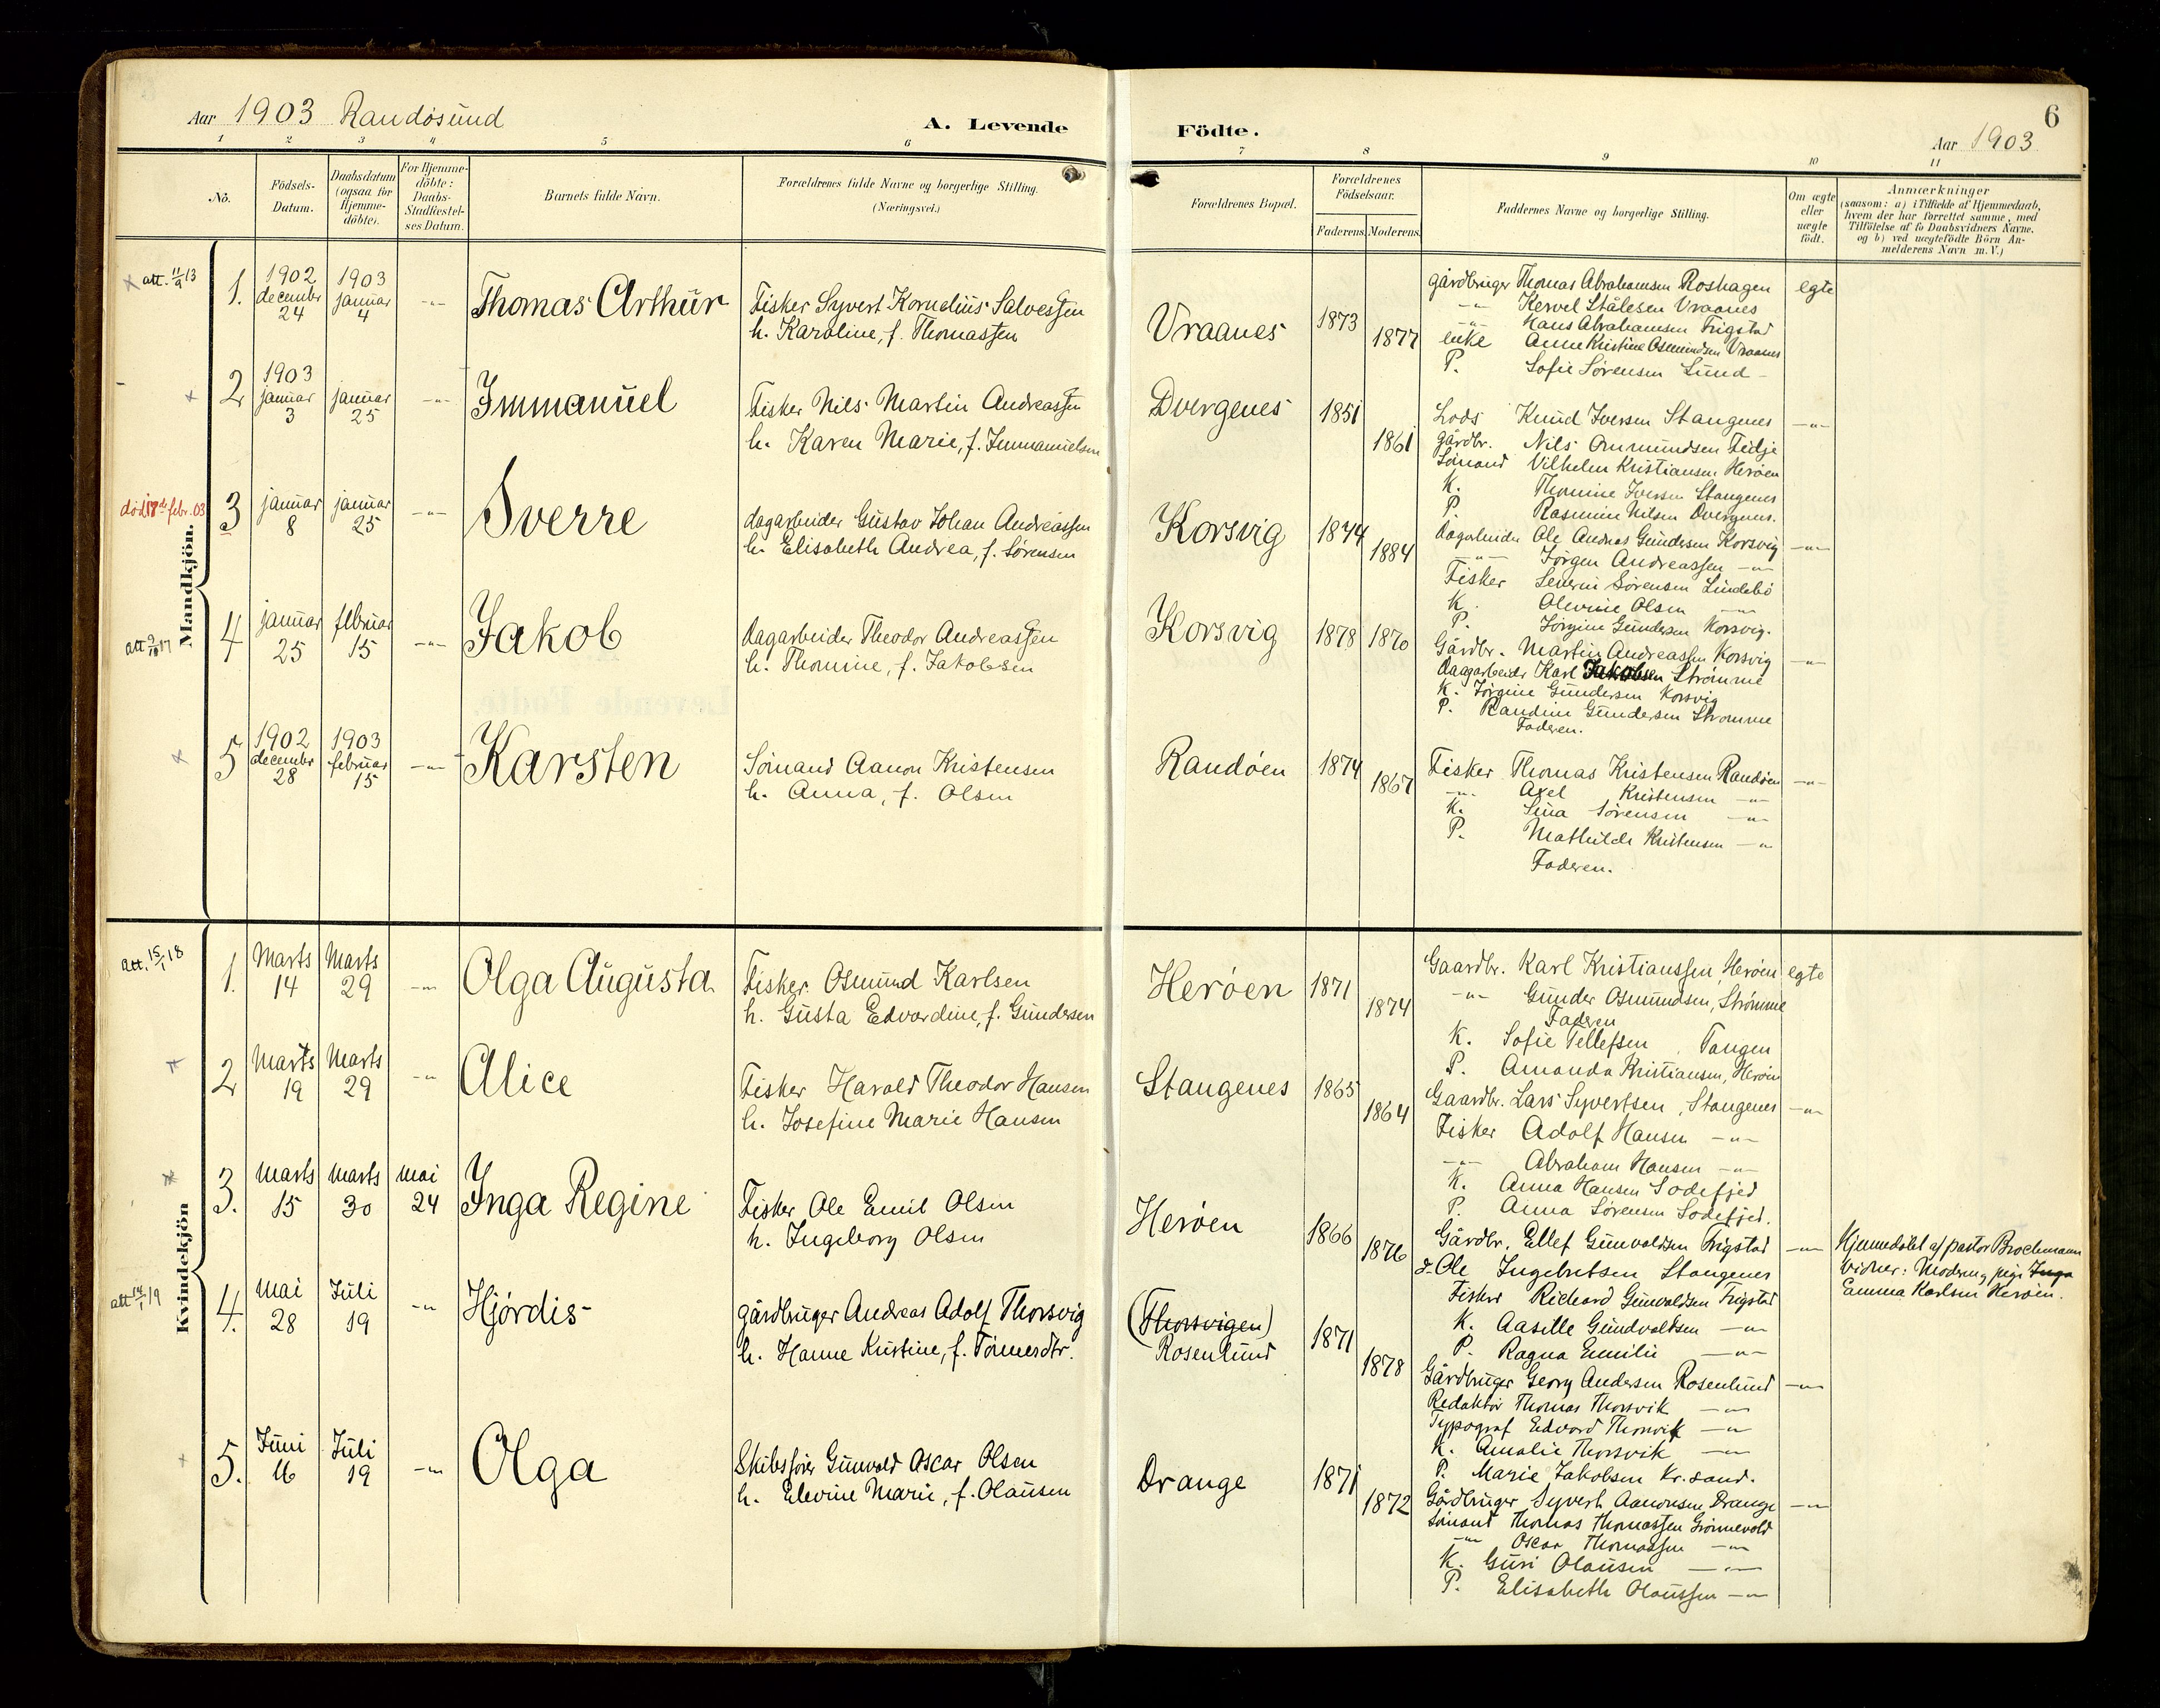 Aar 1903 Randösund
A. Levende
Födte.
6
Aar 1903
1 2 3 4 5 6 7 8 9 10 11
No.
Födsels-
Datum.
Daabsdatum
(ogsaa for
Hjemme-
döbte).
For Hjemme-
döbte:
Daabs-
Stadfæstel-
ses Datum.
Barnets fulde Navn.
Forældrenes fulde Navne og borgerlige Stilling.
(Næringsvei.)
Forældrenes Bopæl.
Forældrenes
Födselsaar.
Faderens. Moderens.
Faddernes Navne og borgerlige Stilling.
Om ægte
eller
uægte
födt.
Anmærkninger
(saasom: a) i Tilfælde af Hjemmedaab,
hvem der har forrettet samme, med
Tilföielse af to Daabsvidners Navne.
og b) ved uægtefödte Börn An-
melderens Navn m.V.)
Mandkjön.
att. 11/9 13
1.
1902
decembr
24
1903
januar
4
-"-
Thomas Arthur
Fisker Syvert Kornelius Salvessen
h. Karoline, f. Thomassen
Vraanes
1873
1877
gårdbruger Thomas Abrahamsen Roshagen
-"- Kervel Stålesen Vraanes
-"- Hans Abrahamsen Frigstad
enke Anne Kristine Osmundsen Vraanes
P. Sofie Sørensen Lund
egte
2
1903
januar
3
januar
25
-"-
Immanuel
Fisker Nils Martin Andreassen
h. Karen Marie, f. Immanuelsen
Dvergenes
1851
1861
Lods Knud Iversen Stangenes
gårdbr. Nils Ommundsen Fidje
Sømand Vilhelm Kristiansen Herøen
K. Thomine Iversen Stangenes
P. Rasmine Nilsen Dvergenes.
-"-
død 18de febr. 03
3
januar
8
januar
25
-"-
Sverre
dagarbeider Gustav Johan Andreassen
h. Elisabeth Andrea, f. Sørensen
Korsvig
1874
1884
dagarbeider Ole Andreas Gundersen Korsvig
-"- Jørgen Andreassen -"-
Fisker Severin Sørensen Lindebø
K. Olevine Olsen -"-
P. Jørgine Gundersen Korsvig.
-"-
att 9/10 17
4
januar
25
februar
15
-"-
Jakob
dagarbeider Theodor Andreassen
h. Thomine, f. Jakobsen
Korsvig
1878
1870
Gårdbr. Martin Andreassen Korsvig
dagarbeider Karl Jakobsen Strømme
K. Jørgine Gundersen Korsvig
P. Randine Gundersen Strømme
Faderen.
-"-
5
1902
decembr
28
1903
februar
15
-"-
Karsten
Sømand Aanon Kristensen
h. Anna, f. Olsen
Randøen
1874
1867
Fisker Thomas Kristensen Randøen
-"- Axel Kristensen -"-
K. Sina Sørensen -"-
P. Mathilde Kristensen -"-
Faderen.
-"-
Kvindekjön
att. 15/1 18
1.
Marts
14
Marts
29
-"-
Olga Augusta
Fisker Osmund Karlsen
h. Gusta Edvardine, f. Gundersen
Herøen
1871
1874
Gaardbr. Karl Kristianssen, Herøen
-"- Gunder Osmundsen, Strømme
Faderen
K. Sofie Tellefsen Tangen
P. Amanda Kristiansen, Herøen
egte
2
Marts
19
Marts
29
-"-
Alice
Fisker Harald Theodor Hansen
h. Josefine Marie Hansen
Stangenes
1865
1864
Gaardbr. Lars Syvertsen, Stangenes
Fisker Adolf Hansen -"-
-"- Abraham Hansen -"-
K. Anna Hansen Sodefjed
P. Anna Sørensen Sodefjed.
-"-
3.
Marts
15
Marts
30
Mai
24
Inga Regine
Fisker Ole Emil Olsen
h. Ingeborg Olsen
Herøen
1866
1876
Gårdbr. Ellef Gunvaldsen Frigstad
d. Ole Ingebretsen Stangenes
Fisker Richard Gunvaldsen Frigstad
K. Aasille Gundvaldsen -"-
P. Ragna Emilie -"-
-"-
Hjemmedøbt af pastor Brochmann
Vidner: Moderen, pige Inga
Emma Karlsen Herøen.
att 14/1 19
4.
Mai
28
Juli
19
-"-
Hjørdis
gårdbruger Andreas Adolf Thorsvig
h. Hanne Kristine, f. Tønnesdtr.
(Thorsvigen)
Rosenlund
1871
1878
Gårdbruger Georg Andersen Rosenlund
Redaktør Thomas Thorsvik -"-
Typograf Edvard Thorsvik -"-
K. Amalie Thorsvik -"-
P. Marie Jakobsen Kr.sand.
-"-
5.
Juni
16
Juli
19
-"-
Olga
Skibsfører Gunvald Oscar Olsen
h. Elevine Marie, f. Olausen
Drange
1871
1872
Gårdbruger Syvert Aanonsen Drange
Sømand Thomas Thomassen Grønnevold
-"- Oscar Thomassen -"-
K. Guri Olausen -"-
P. Elisabeth Olaussen -"-
-"-